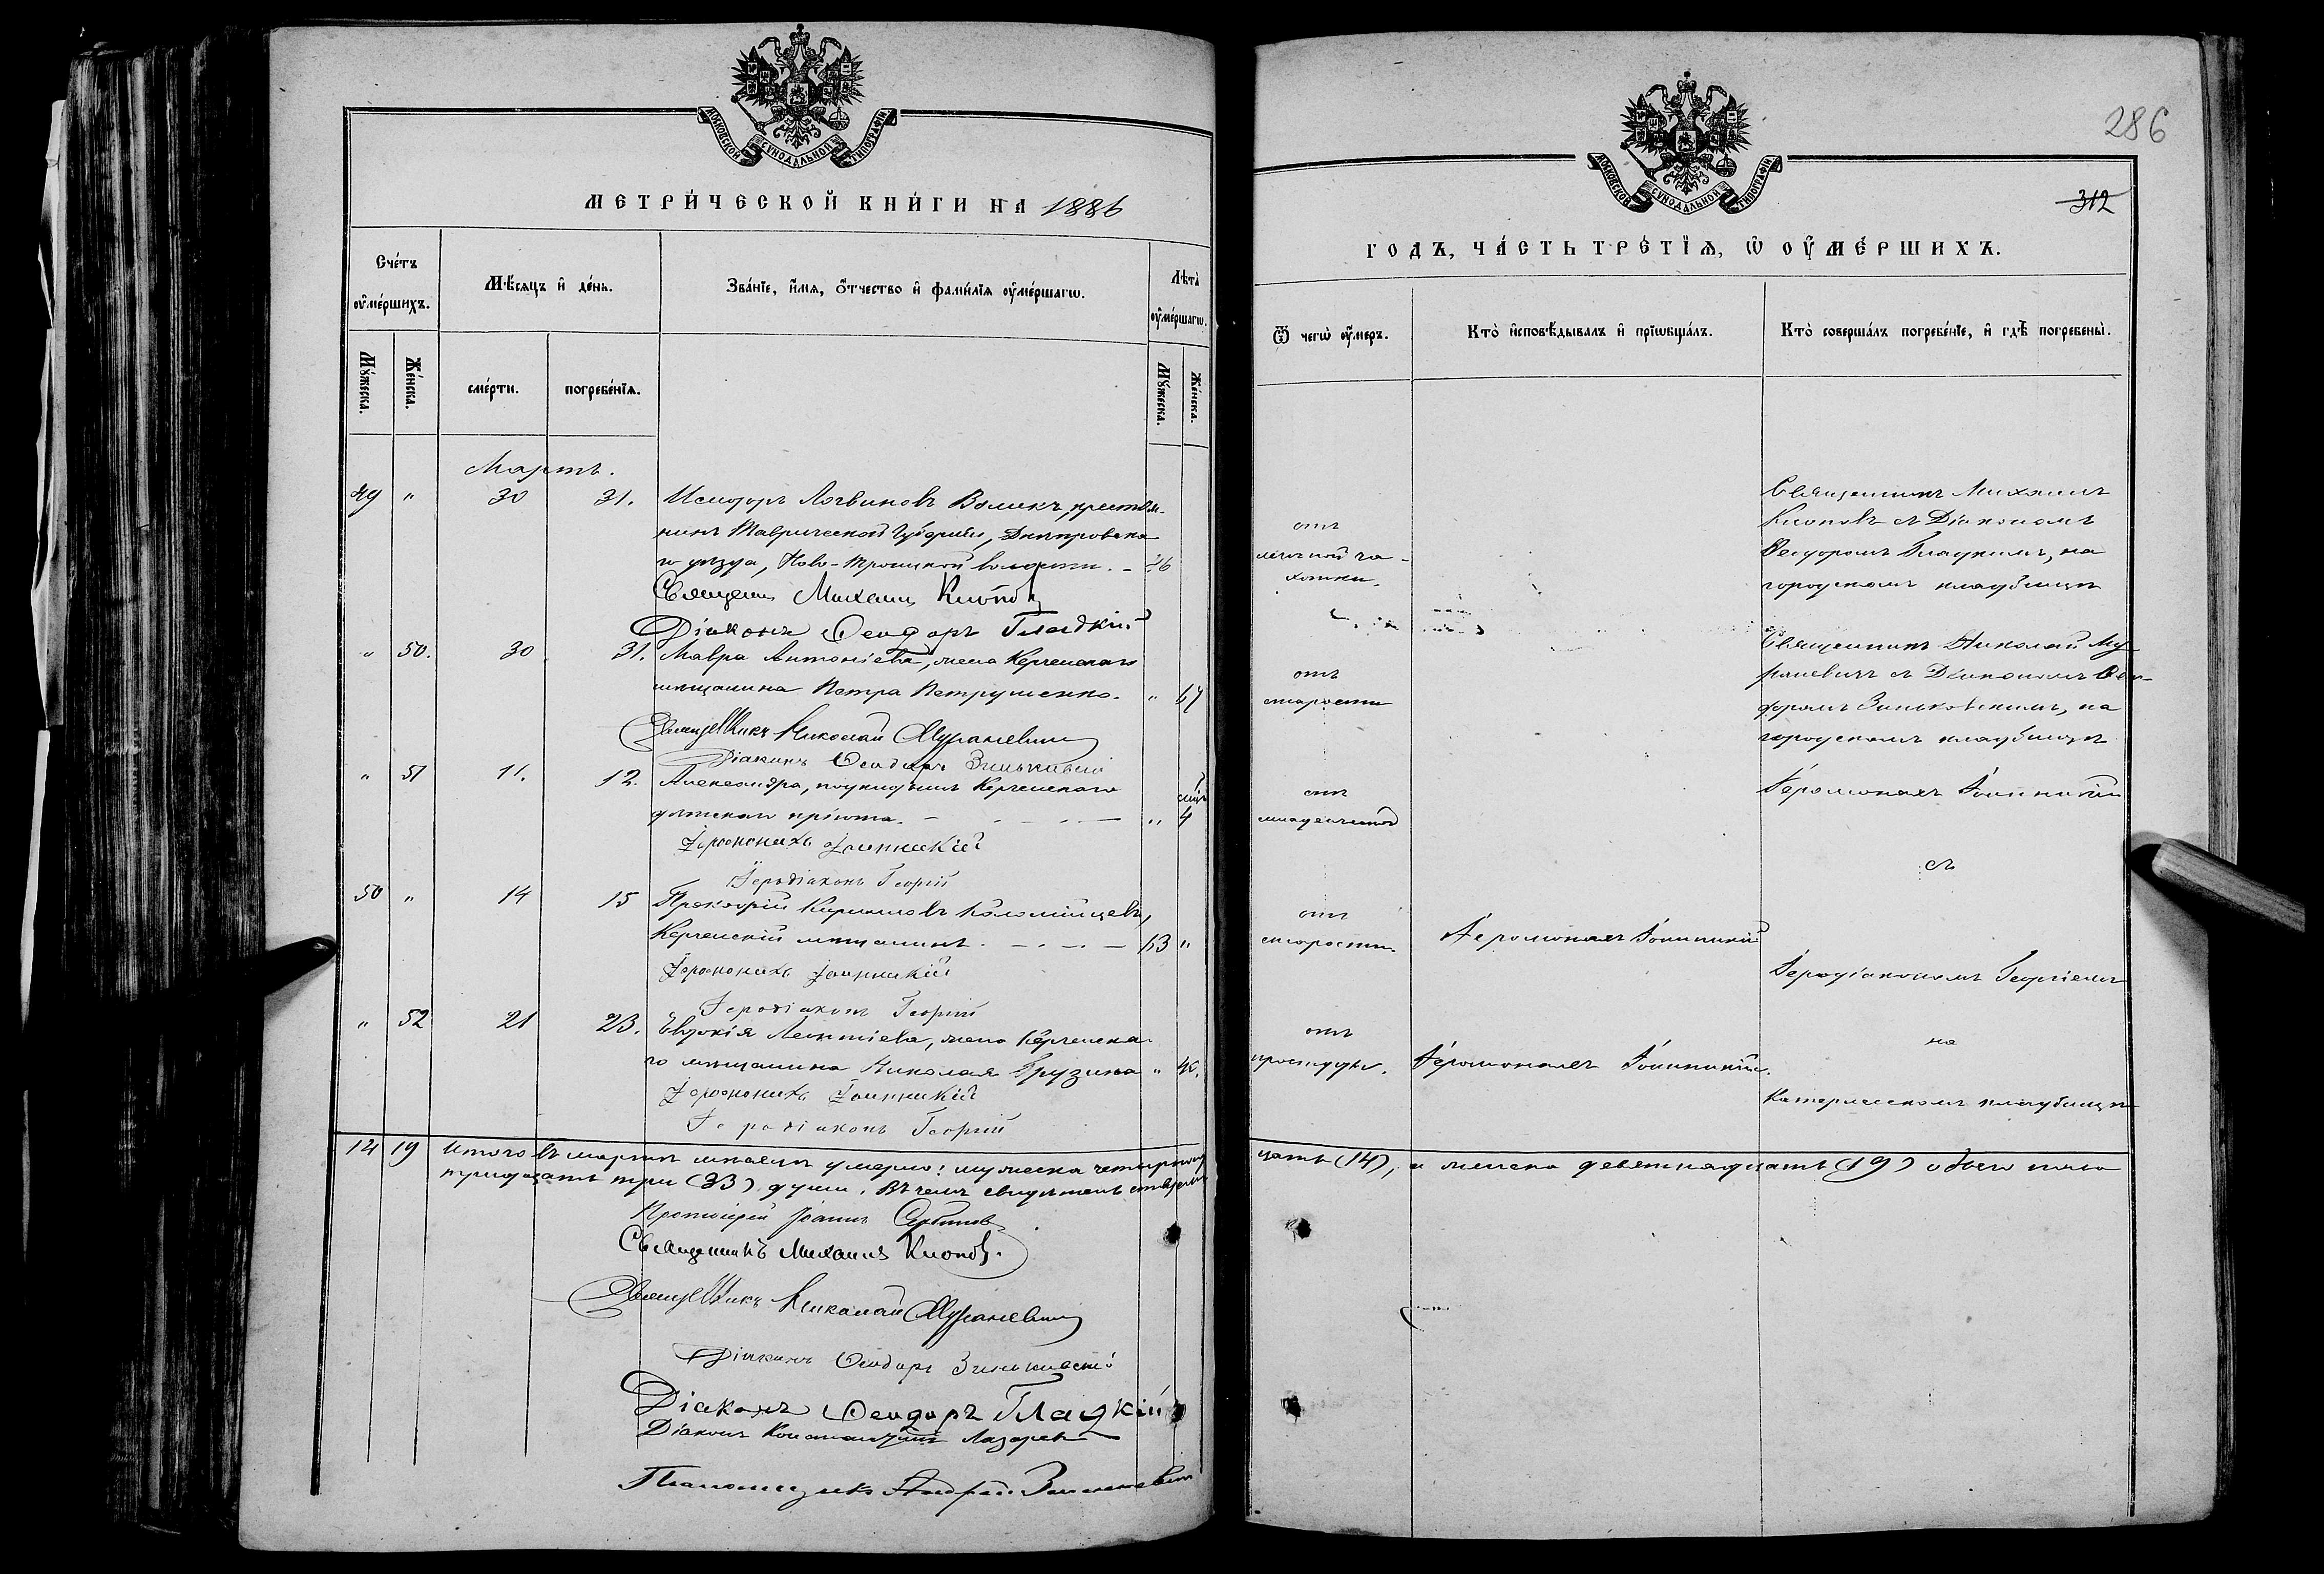 МОСКОВСКОЙ СУНОДАЛЬНОЙ ТИПОГРАФІИ
МЕТРИ́ЧЕСКОЙ КНИ́ГИ НА 1886
Сче́тъ ᲂу҆ме́ршихъ.
Мѣ́сяцъ и҆ де́нь.
Зва́нїе, и҆́мѧ, ѻ҆́тчество и҆ фами́лїѧ ᲂу҆ме́ршагѡ.
Лѣ́та ᲂу҆ме́ршагѡ.
Мꙋ́жеска.
Же́нска.
сме́рти.
погребе́нїѧ.
Мꙋ́жеска.
Же́нска.
Мартъ.
49 " 30 31. Исидоръ Логвиновъ Воликъ, крестья-
нинъ Таврической губерніи, Днѣпровска
го уѣзда, Ново-Троицкой волости. - 26
Священ Михаилъ Клоповъ
Діаконъ Ѳеодоръ Гладкій
" 50. 30 31. Мавра Антоніева, жена Керченскаго
мѣщанина Петра Петрушенко. " 67
Священникъ Николай Мураневичъ
Діаконъ Ѳеодоръ Зиньковскій
" 51 11. 12. Александра, подкидышъ Керченскаго
дѣтскаго пріюта. - " 4
Іеромонахъ Іоанникій
Іеродіаконъ Георгій
50 " 14 15 Прокофій Кирилловъ Коломійцевъ,
Керченскій мѣщанинъ. 63 "
Іеромонахъ Іоанникій
Іеродіаконъ Георгій
" 52 21 23. Евдокія Леонтіева, жена Керченска-
го мѣщанина Николая Грузина " 40.
Іеромонахъ Іоанникій
Іеродіаконъ Георгій
14 19 Итого въ мартѣ мѣсяцѣ умерло: мужеска четырнад
тридцать три (33) души. Въ чемъ свидѣтельствуемъ
Протоіерей Іоаннъ
Священникъ Михаилъ Клоповъ.
Священникъ Николай Мураневичъ
Діаконъ Ѳеодоръ Зиньковскій
Діаконъ Ѳеодоръ Гладкій
Діаконъ Константинъ Лазаревъ
Псаломщикъ Андрей
286
312
МОСКОВСКОЙ СУНОДАЛЬНОЙ ТИПОГРАФІИ
ГОДЪ, ЧА́СТЬ ТРЕ́ТЇѦ, Ѡ҆ ОУ҆МЕ́РШИХЪ.
Ѿ чегѡ̀ ᲂу҆́меръ.
Кто̀ и҆сповѣ́дывалъ и҆ прїѡбща́лъ.
Кто̀ соверша́лъ погребе́нїе, и҆ гдѣ̀ погребены̀.
отъ
легочной ча-
хотки.
Священникъ Михаилъ
Клоповъ съ Діакономъ
Ѳеодоромъ Гладкимъ, на
городскомъ кладбищѣ
отъ
старости
Священникъ Николай Му-
раневичъ съ Діакономъ Ѳео-
доромъ Зиньковскимъ, на
городскомъ кладбищѣ
отъ
младенческой
Іеромонахъ Іоанникій
съ
отъ
старости.
Іеромонахъ Іоанникій
Іеродіакономъ Георгіемъ
на
отъ
простуды.
Іеромонахъ Іоанникій.
Катерлесскомъ кладбищѣ
цать (14), а женска девятнадцать (19) обоего пола